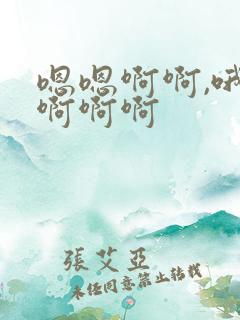 嗯嗯啊啊,哦
啊啊啊
張艾亞
未经同意禁止转载